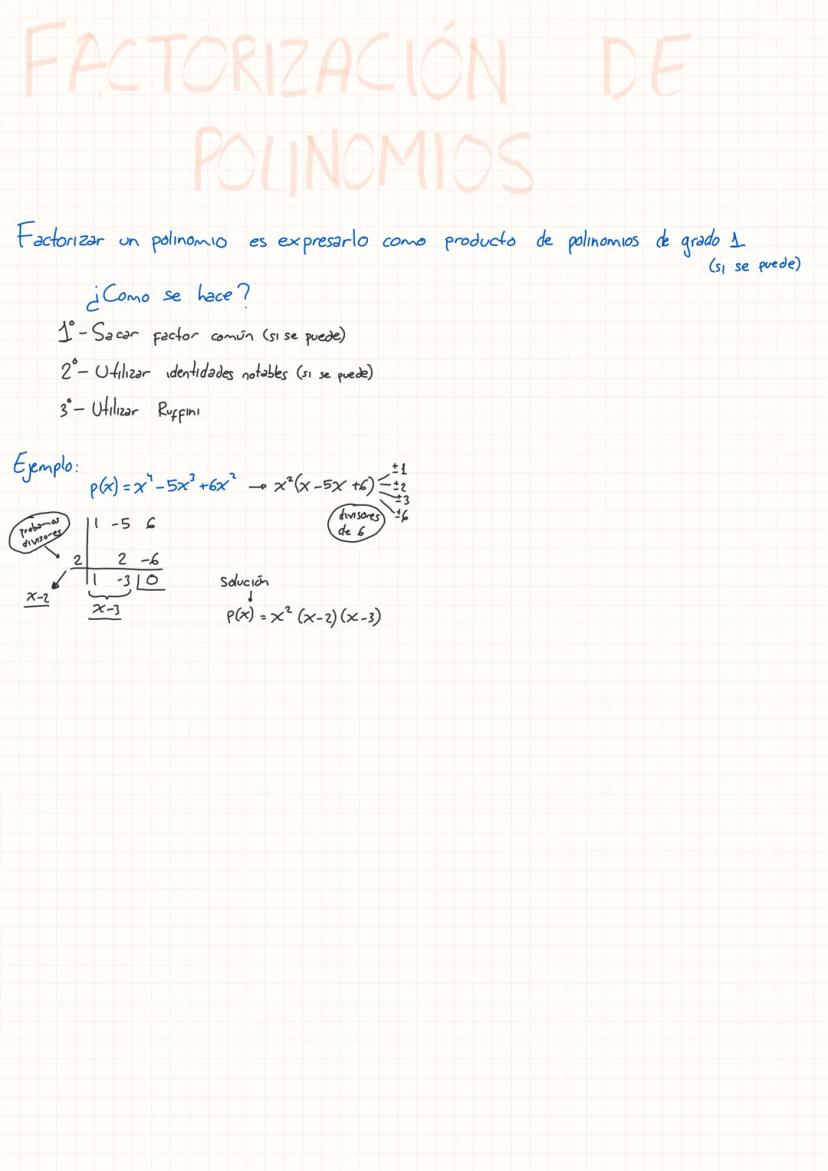 FACTORIZACIÓN DE
POLINOMIOS
Factorizar un polinomio es expresarlo como producto de polinomios de grado 1
(si se puede)
¿Como se hace?
1º- Sacar factor común (si se puede)
2º- Utilizar identidades notables (si se puede)
3º- Utilizar Ruffini
Ejemplo:
p(x) = x⁴ - 5x³ + 6x² → x²(x - 5x + 6)
±1
±2
±3
±6
divisores
de 6
probamos
divisores
1 -5 6
2 2 -6
1 -3 0
x-2
x-3
Solución
↓
P(x) = x² (x-2)(x-3)